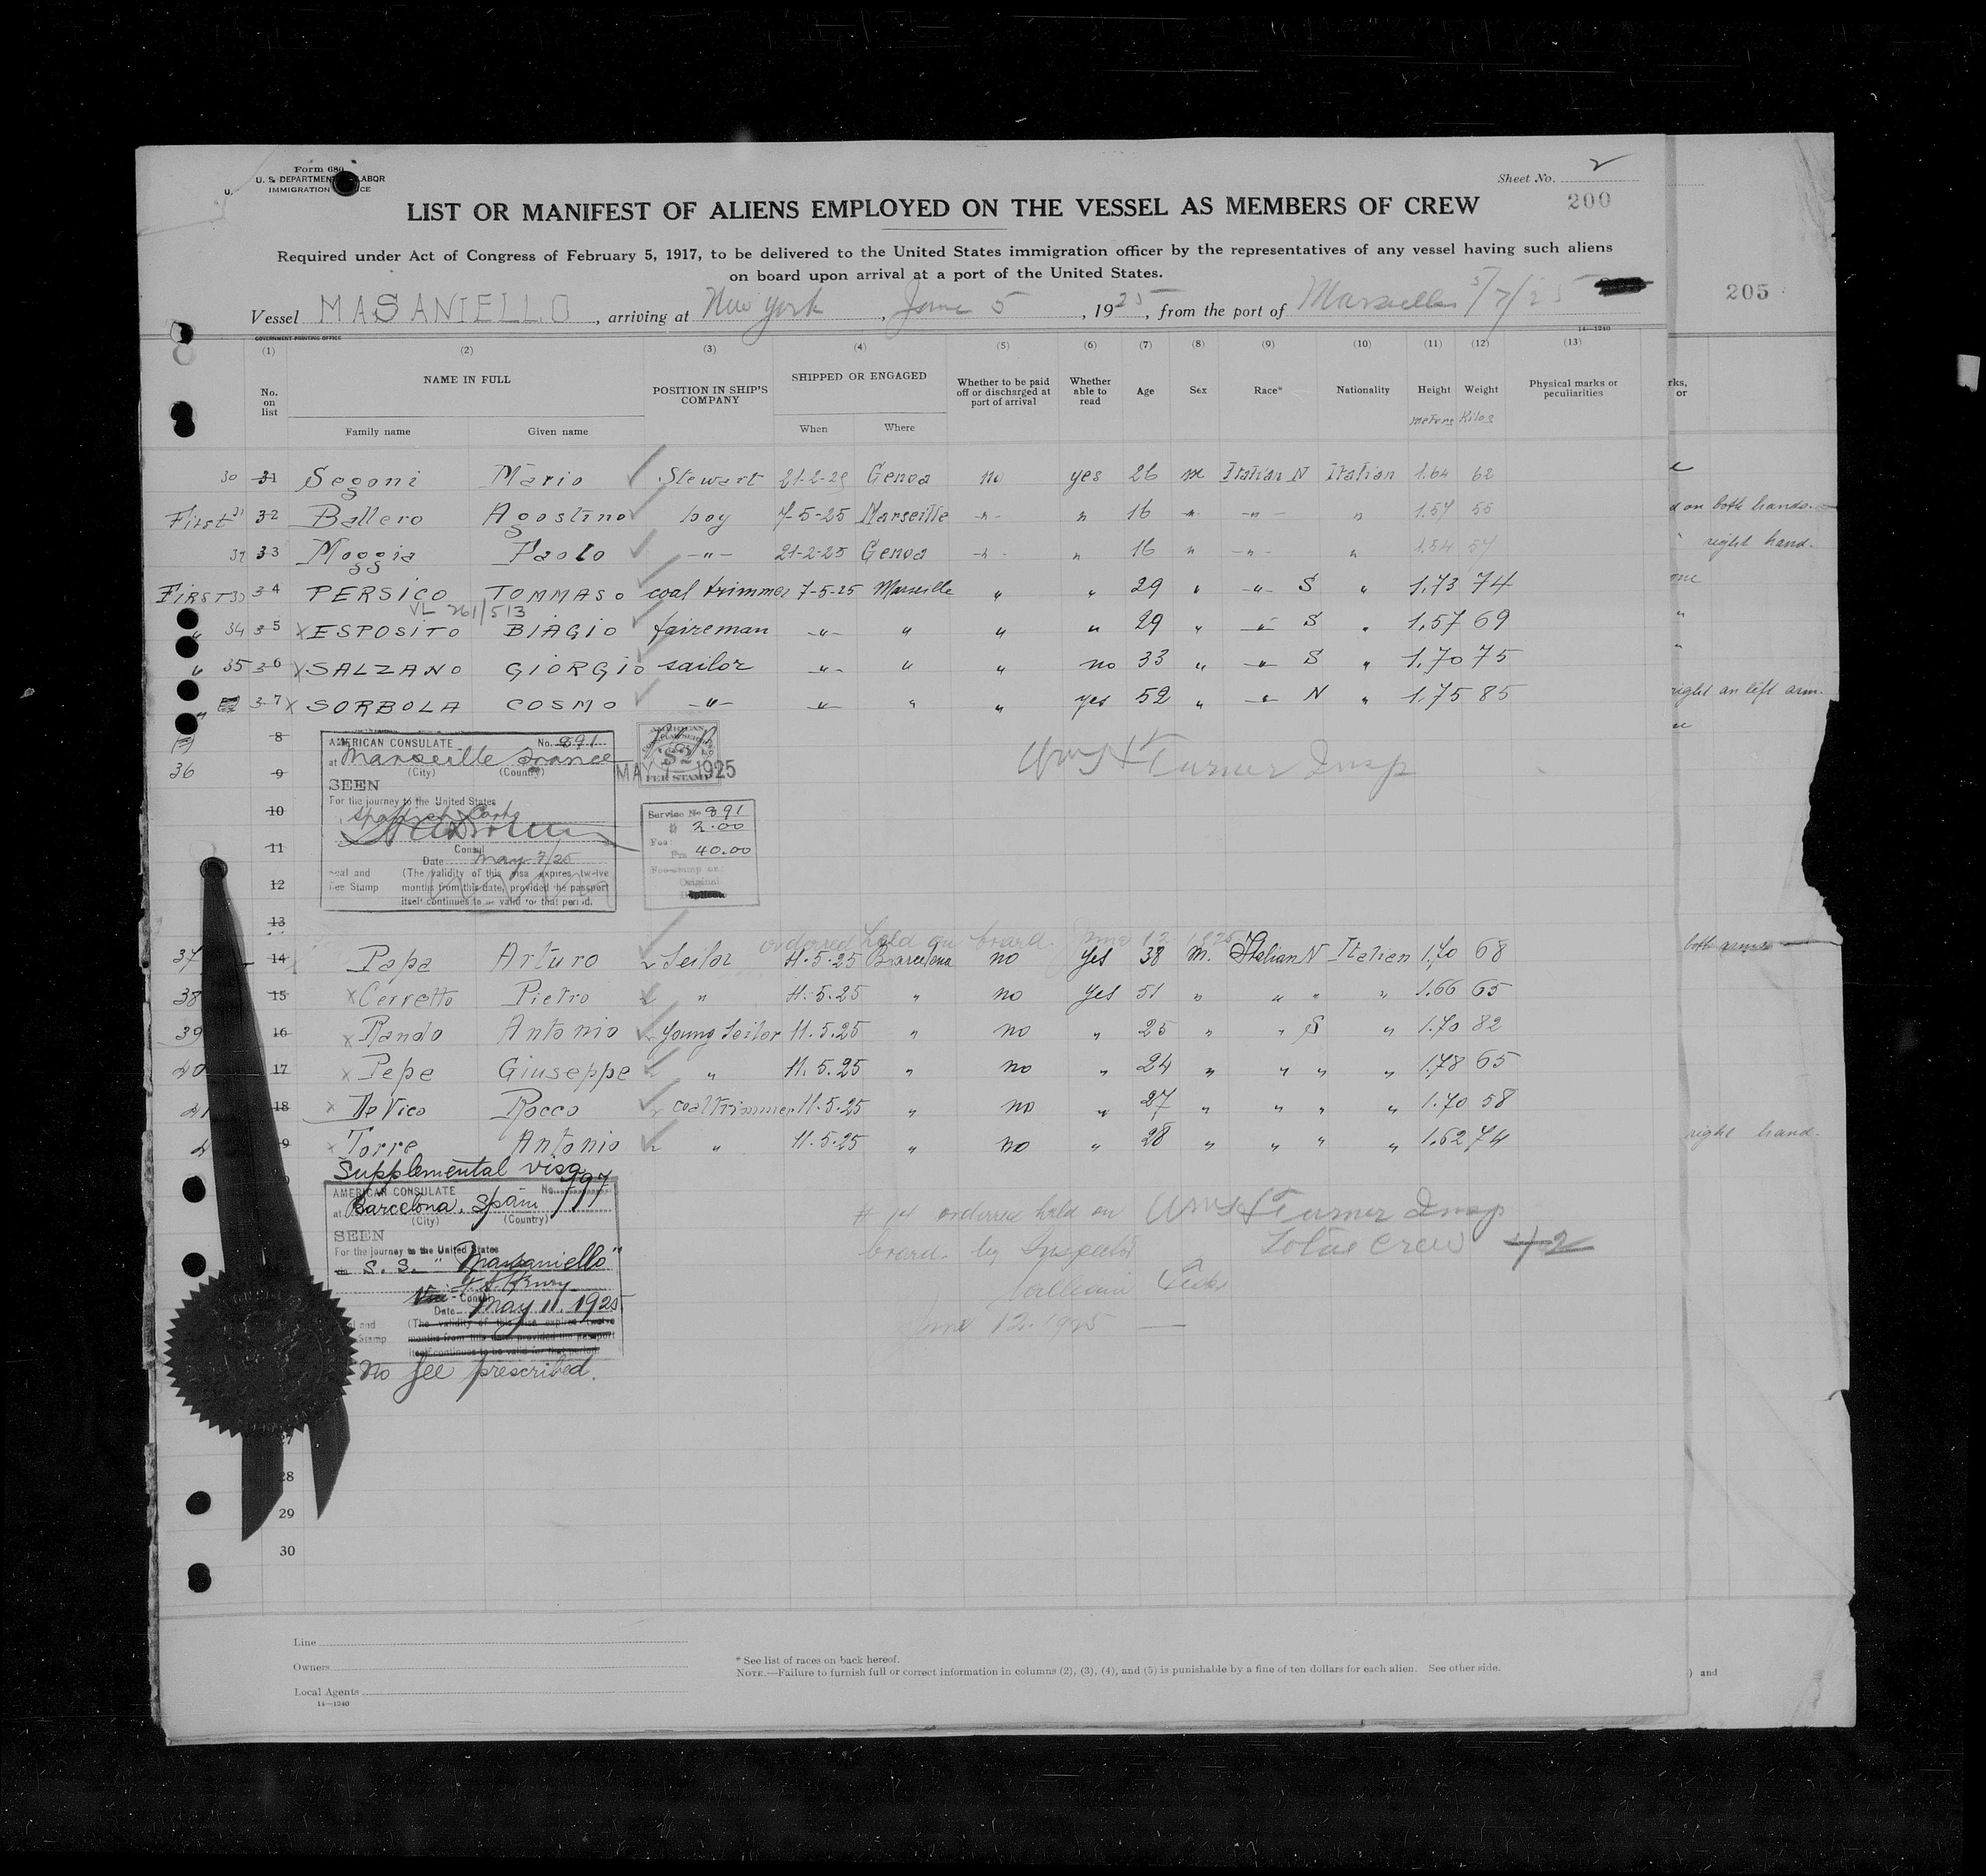 Form 680
U. S. DEPARTMENT LABOR
IMMIGRATION
Sheet No. 2
200
LIST OR MANIFEST OF ALIENS EMPLOYED ON THE VESSEL AS MEMBERS OF CREW
Required under Act of Congress of February 5, 1917, to be delivered to the United States immigration officer by the representatives of any vessel having such aliens
on board upon arrival at a port of the United States.
205
Vessel MASANIELLO, arriving at New York, June 5, 1925, from the port of Marseilles 5/7/25
14—1240
GOVERNMENT PRINTING OFFICE
(1) (2) (3) (4) (5) (6) (7) (8) (9) (10) (11) (12) (13)
No. on list NAME IN FULL POSITION IN SHIP'S COMPANY SHIPPED OR ENGAGED Whether to be paid off or discharged at port of arrival Whether able to read Age Sex Race* Nationality Height Weight Physical marks or peculiarities
meters Kilos
Family name Given name When Where
30 31 Segoni Mario Stewart 21-2-25 Genoa no yes 26 m Italian N Italian 1.64 62
First 31 32 Ballero Agostino boy 7-5-25 Marseille -"- " 16 " -"- " 1.57 55 on both hands.
32 33 Moggia Paolo -"- 21-2-25 Genoa -"- " 16 " -"- " 1.54 54 right hand.
FIRST 33 34 PERSICO TOMMASO coal trimmer 7-5-25 Marseille " " 29 " -"- S " 1,73 74
VL 261/513
" 34 35 X ESPOSITO BIAGIO faireman -"- " " " 29 " -"- S " 1,57 69 "
" 35 36 X SALZANO GIORGIO sailor -"- " " no 33 " -"- S " 1,70 75 "
" 37 X SORBOLA COSMO -"- -"- " " yes 52 " -"- N " 1,75 85 right an left arm.
8
AMERICAN CONSULATE No. 891
at Marseille France
(City) (Country)
SEEN
For the journey to the United States
Consul
Date May 7/25
Seal and Fee Stamp (The validity of this visa expires twelve
months from this date, provided the passport
itself continues to be valid for that period.
AMERICAN
$2
FEE STAMP
MAY 7 1925
Service No 891
$ 2.00
Fee:
Frs 40.00
Fee stamp on
Original
Wm H Turner Insp
36 9
10
11
12
13
ordered held on board June 12 1925
37 14 Papa Arturo Seilor 11.5.25 Barcelona no Yes 38 M. Italian N Italien 1,70 68 both arms
38 15 X Cerretto Pietro " 11.5.25 " no Yes 51 " " " " 1.66 65
39 16 X Rando Antonio Young Seilor 11.5.25 " no " 25 " " S " 1.70 82
40 17 X Pepe Giuseppe " 11.5.25 " no " 24 " " " " 1.78 65
41 18 X De Vico Rocco Coal trimmer 11.5.25 " no " 27 " " " " 1.70 58
9 X Torre Antonio " 11.5.25 " no " 28 " " " " 1.62 74 right hand.
Supplemental visa
AMERICAN CONSULATE No. 997
at Barcelona, Spain
(City) (Country)
SEEN
For the journey to the United States
on S. S. "Masaniello"
Vice-Consul
Date May 11, 1925
(The validity of this visa expires twelve
months from this date, provided the passport
itself continues to be valid for that period.
No fee prescribed.
# 14 ordered held on
board by Inspector
June 12. 1925
Wm H Turner Insp
Total Crew 42
27
28
29
30
Line
Owners
Local Agents
14—1240
* See list of races on back hereof.
NOTE.—Failure to furnish full or correct information in columns (2), (3), (4), and (5) is punishable by a fine of ten dollars for each alien. See other side.
) and